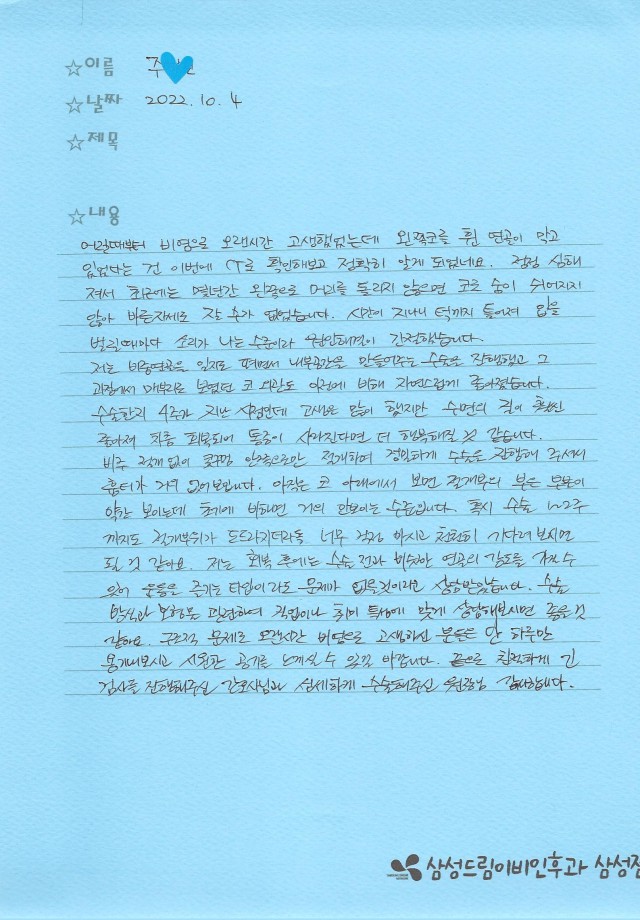 ☆이름 주
☆날짜 2022. 10. 4
☆제목
☆내용
어릴때부터 비염으로 오랜시간 고생했었는데 왼쪽코를 휜 연골이 막고
있었다는 건 이번에 CT로 확인해보고 정확히 알게 되었네요. 점점 심해
져서 최근에는 몇년간 왼쪽으로 머리를 돌리지 않으면 코로 숨이 쉬어지지
않아 바른자세로 잘 수가 없었습니다. 시간이 지나니 턱까지 틀어져 입을
벌릴때마다 소리가 나는 수준이라 원인해결이 간절했습니다.
저는 비중연골은 일자로 펴면서 내부공간을 만들어주는 수술을 진행했고 그
과정에서 매부리로 보였던 코 외관도 이전에 비해 자연스럽게 좋아졌습니다.
수술한지 4주가 지난 시점인데 고생은 많이 했지만 수면의 질이 훨씬
좋아져 차츰 회복되어 통증이 사라진다면 더 행복해질 것 같습니다.
비주 절개 없이 콧구멍 안쪽으로만 절개하여 정밀하게 수술을 진행해 주셔서
흉터가 거의 없어보입니다. 아직은 코 아래에서 보면 절개부의 부은 부분이
약간 보이는데 초기에 비하면 거의 안보이는 수준입니다. 혹시 수술 1~2주
까지도 절개부위가 도드라지더라도 너무 걱정 마시고 천천히 기다려보시면
될 것 같아요. 저는 회복 후에는 수술 전과 비슷한 연골의 강도를 가질 수
있어 운동을 즐기는 타입이라도 문제가 없을것이라고 상담받았습니다. 수술
방식과 보형물 관련하여 직업이나 취미 특성에 맞게 상담해보시면 좋을 것
같아요. 구조적 문제로 오랜시간 비염으로 고생하신 분들은 딱 하루만
용기내보시고 시원한 공기를 느끼실 수 있길 바랍니다. 끝으로 친절하게 긴
검사를 진행해주신 간호사님과 섬세하게 수술해주신 원장님 감사합니다.
삼성드림이비인후과 삼성점